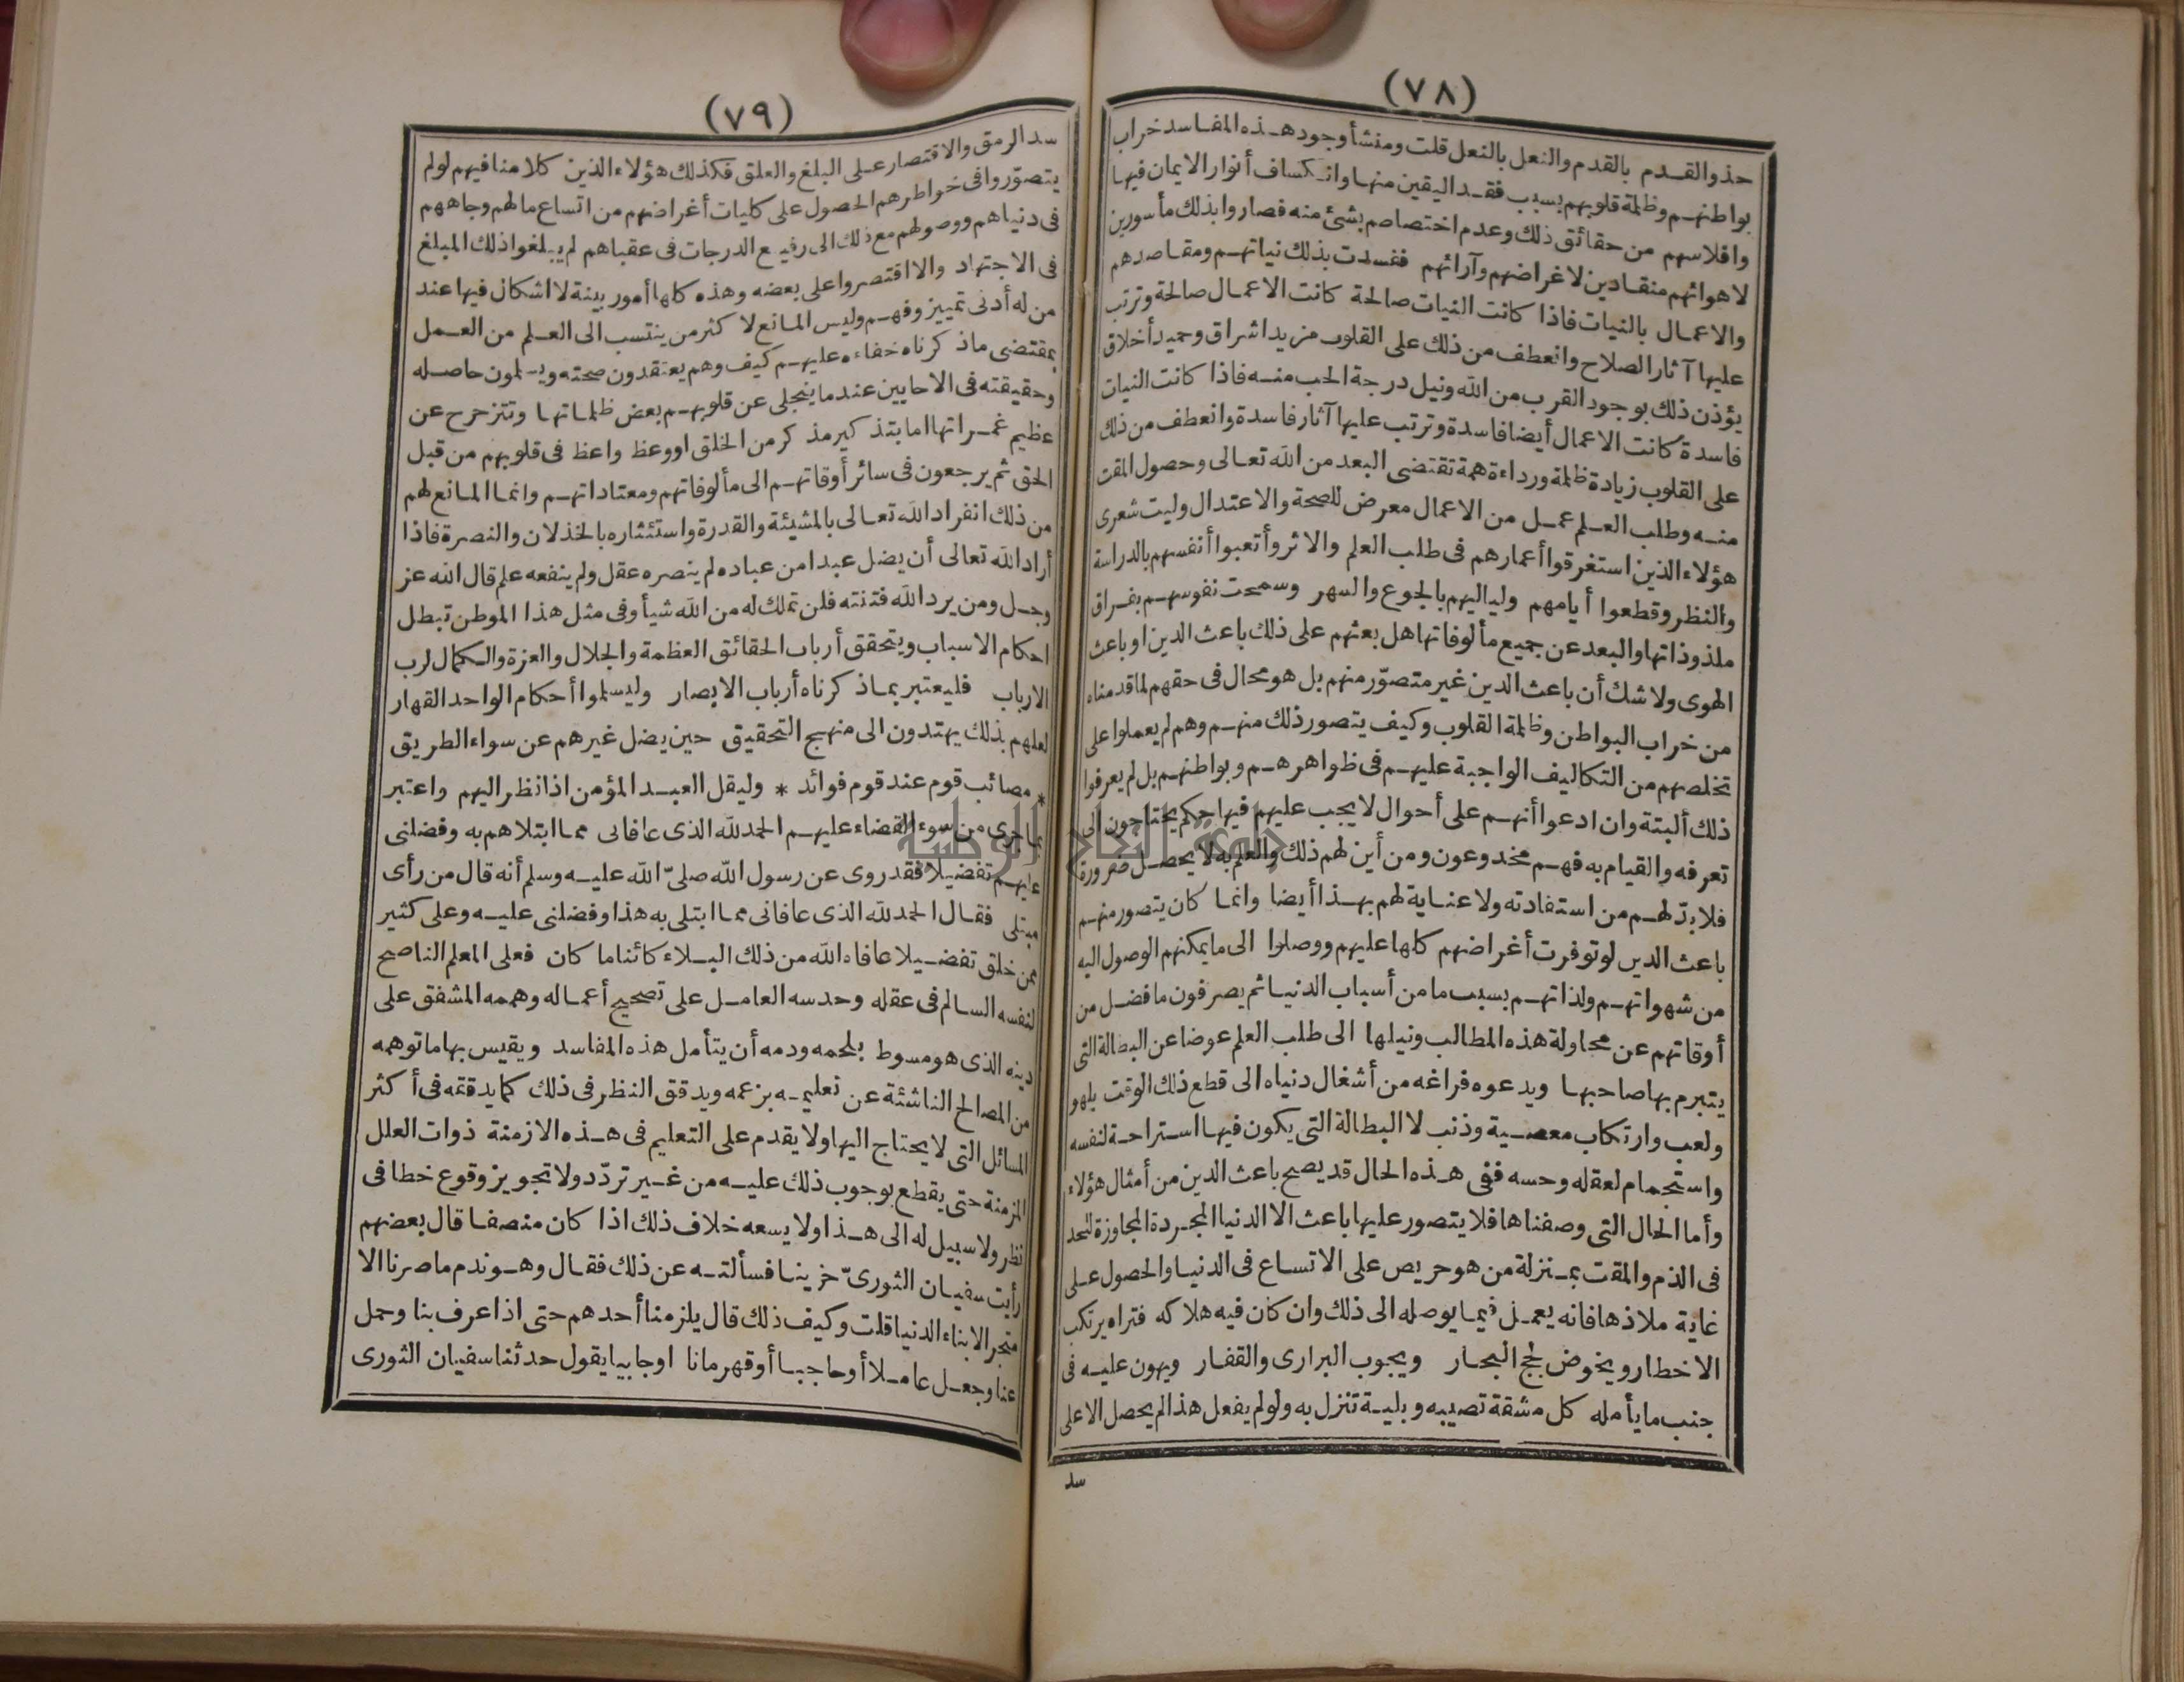 (٧٨)
حذو القدم بالقدم والنعل بالنعل قلت ومنشأ وجود هذه المفاسد خراب
بواطنهم وظلمة قلوبهم بسبب فقد اليقين منها وانكساف أنوار الايمان فيها
وافلاسهم من حقائق ذلك وعدم اختصاصهم بشئ منه فصاروا بذلك مأسورين
لاهوائهم منقادين لاغراضهم وآرائهم ففسدت بذلك نياتهم ومقاصدهم
والاعمال بالنيات فاذا كانت النيات صالحة كانت الاعمال صالحة وترتب
عليها آثار الصلاح وانعطف من ذلك على القلوب مزيد اشراق وحميد أخلاق
يؤذن ذلك بوجود القرب من الله ونيل درجة الحب منه فاذا كانت النيات
فاسدة كانت الاعمال أيضا فاسدة وترتب عليها آثار فاسدة وانعطف من ذلك
على القلوب زيادة ظلمة ورداءة همة تقتضى البعد من الله تعالى وحصول المقت
منه وطلب العلم عمل من الاعمال معرض للصحة والاعتدال وليت شعرى
هؤلاء الذين استغرقوا أعمارهم فى طلب العلم والاثر وأتعبوا أنفسهم بالدراسة
والنظر وقطعوا أيامهم ولياليهم بالجوع والسهر وسمحت نفوسهم بفراق
ملذوذاتها والبعد عن جميع مألوفاتها هل بعثهم على ذلك باعث الدين او باعث
الهوى ولا شك أن باعث الدين غير متصوّر منهم بل هو محال فى حقهم لما قدمناه
من خراب البواطن وظلمة القلوب وكيف يتصور ذلك منهم وهم لم يعملوا على
تخلصهم من التكاليف الواجبة عليهم فى ظواهرهم وبواطنهم بل لم يعرفوا
ذلك ألبتة وان ادعوا أنهم على أحوال لا يجب عليهم فيها حكم يحتاجون الى
تعرفه والقيام به فهم مخدوعون ومن أين لهم ذلك والعلم به لا يحصل ضرورة
فلا بدّ لهم من استفادته ولا عناية لهم بهذا أيضا وانما كان يتصور منهم
باعث الدين لو توفرت أغراضهم كلها عليهم ووصلوا الى ما يمكنهم الوصول اليه
من شهواتهم ولذاتهم بسبب ما من أسباب الدنيا ثم يصرفون ما فضل من
أوقاتهم عن محاولة هذه المطالب ونيلها الى طلب العلم عوضا عن البطالة التى
يتبرم بها صاحبها ويدعوه فراغه من أشغال دنياه الى قطع ذلك الوقت بلهو
ولعب وارتكاب معصية وذنب لا البطالة التى يكون فيها استراحة لنفسه
واستجمام لعقله وحسه ففى هذه الحال قد يصح باعث الدين من أمثال هؤلاء
وأما الحال التى وصفناها فلا يتصور عليها باعث الا الدنيا المجردة المجاوزة للحد
فى الذم والمقت بمنزلة من هو حريص على الاتساع فى الدنيا والحصول على
غاية ملاذها فانه يعمل فيما يوصله الى ذلك وان كان فيه هلاكه فتراه يرتكب
الاخطار ويخوض لجج البحار ويجوب البرارى والقفار ويهون عليه فى
جنب ما يأمله كل مشقة تصيبه وبلية تنزل به ولو لم يفعل هذا لم يحصل الا على
سد
(٧٩)
سد الرمق والاقتصار على البلغ والعلق فكذلك هؤلاء الذين كلامنا فيهم لو لم
يتصوّروا فى خواطرهم الحصول على كليات أغراضهم من اتساع مالهم وجاههم
فى دنياهم ووصولهم مع ذلك الى رفيع الدرجات فى عقباهم لم يبلغوا ذلك المبلغ
فى الاجتهاد والا اقتصروا على بعضه وهذه كلها أمور بينة لا اشكال فيها عند
من له أدنى تمييز وفهم وليس المانع لاكثر من ينتسب الى العلم من العمل
بمقتضى ما ذكرناه خفاءه عليهم كيف وهم يعتقدون صحته ويعلمون حاصله
وحقيقته فى الاحايين عندما ينجلى عن قلوبهم بعض ظلماتها وتتزحزح عن
عظيم غمراتها اما بتذكير مذكر من الخلق او وعظ واعظ فى قلوبهم من قبل
الحق ثم يرجعون فى سائر أوقاتهم الى مألوفاتهم ومعتاداتهم وانما المانع لهم
من ذلك انفراد الله تعالى بالمشيئة والقدرة واستئثاره بالخذلان والنصرة فاذا
أراد الله تعالى أن يضل عبدا من عباده لم ينصره عقل ولم ينفعه علم قال الله عز
وجل ومن يرد الله فتنته فلن تملك له من الله شيأ وفى مثل هذا الموطن تبطل
احكام الاسباب ويتحقق أرباب الحقائق العظمة والجلال والعزة والكمال لرب
الارباب فليعتبر بما ذكرناه أرباب الابصار وليسلموا أحكام الواحد القهار
لعلهم بذلك يهتدون الى منهج التحقيق حين يضل غيرهم عن سواء الطريق
* مصائب قوم عند قوم فوائد * وليقل العبد المؤمن اذا نظر اليهم واعتبر
بما جرى من سوء القضاء عليهم الحمد لله الذى عافانى مما ابتلاهم به وفضلنى
عليهم تفضيلا فقد روى عن رسول الله صلىّ الله عليه وسلم أنه قال من رأى
مبتلى فقال الحمد لله الذى عافانى مما ابتلى به هذا وفضلنى عليه وعلى كثير
ممن خلق تفضيلا عافاه الله من ذلك البلاء كائنا ما كان فعلى المعلم الناصح
لنفسه السالم فى عقله وحدسه العامل على تصحيح أعماله وهممه المشفق على
دينه الذى هو مسوط بلحمه ودمه أن يتأمل هذه المفاسد ويقيس بها ما توهمه
من المصالح الناشئة عن تعليمه بزعمه ويدقق النظر فى ذلك كما يدققه فى أكثر
المسائل التى لا يحتاج اليها ولا يقدم على التعليم فى هذه الازمنة ذوات العلل
المزمنة حتى يقطع بوجوب ذلك عليه من غير تردّد ولا تجويز وقوع خطا فى
نظر ولا سبيل له الى هذا ولا يسعه خلاف ذلك اذا كان منصفا قال بعضهم
رأيت سفيان الثورىّ حزينا فسألته عن ذلك فقال وهو ندم ما صرنا الا
متجر الابناء الدنيا قلت وكيف ذلك قال يلزمنا أحدهم حتى اذا عرف بنا وحمل
عنا وجعل عاملا أو حاجبا أو قهرمانا او جابيا يقول حدثنا سفيان الثورى